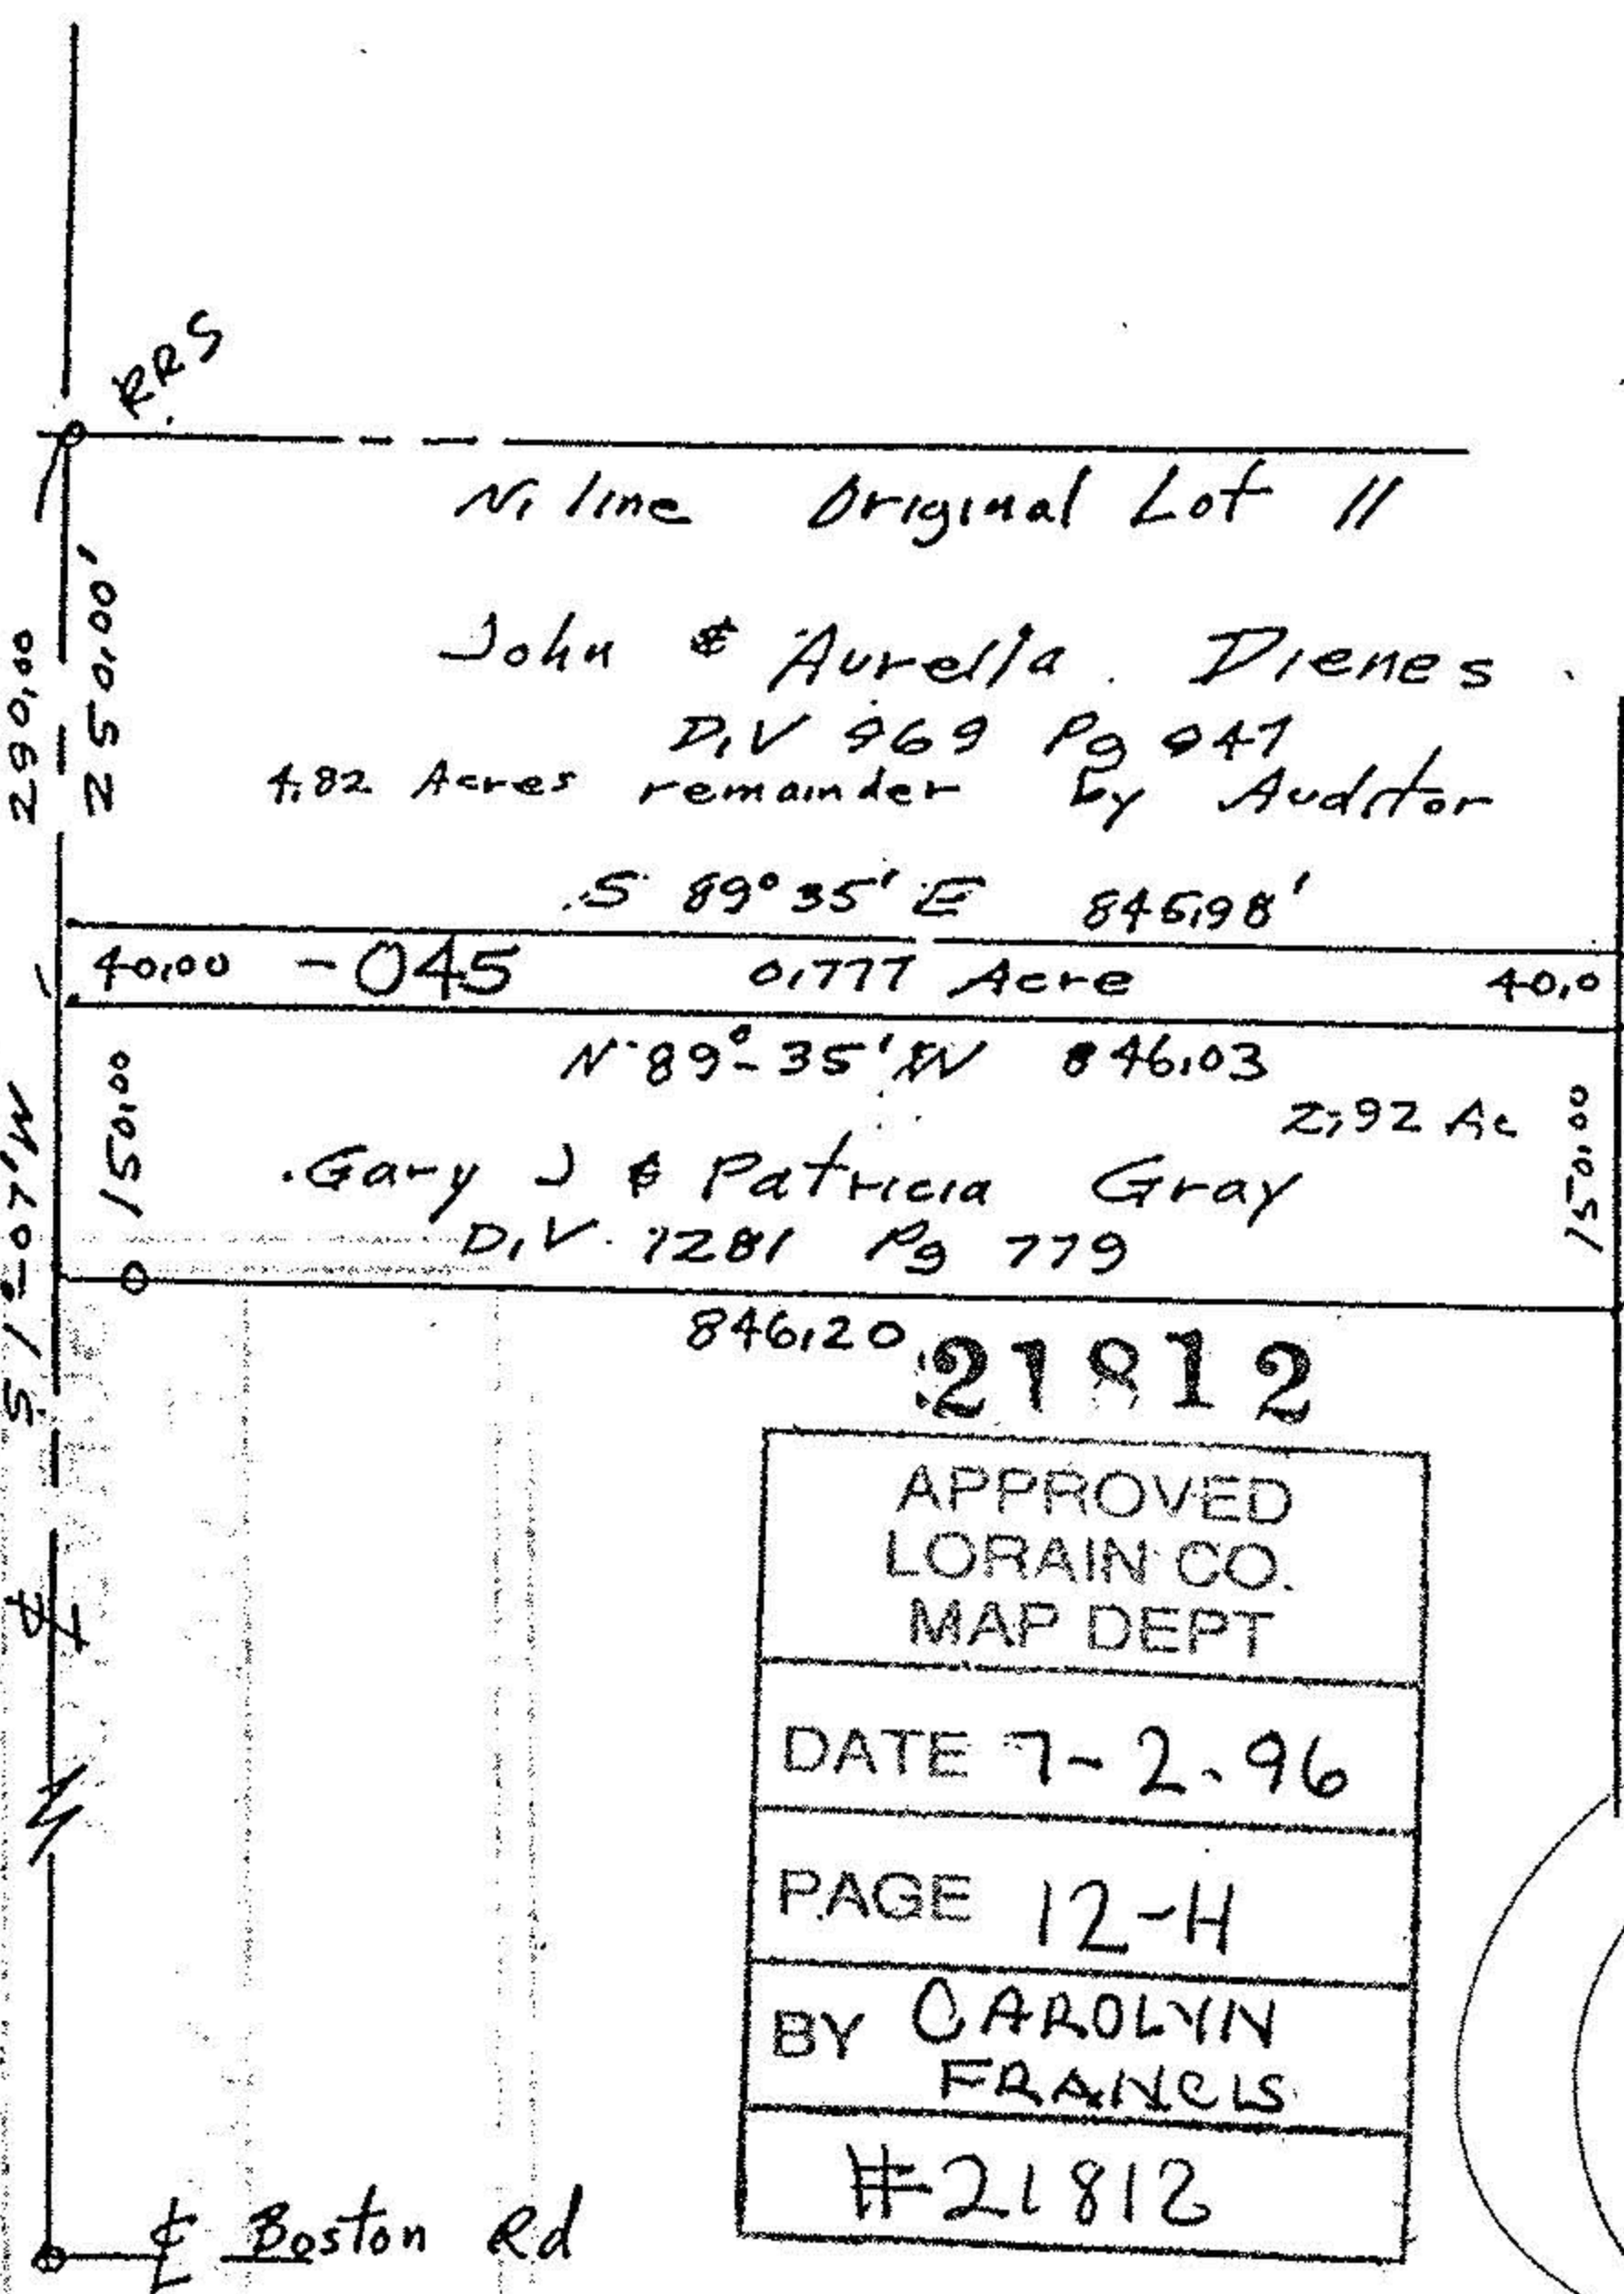 RRS
N. line Original Lot 11
290.00
250.00'
John & Aurelia Dienes
D.V 969 Pg 947
4.82 Acres remainder by Auditor
S 89° 35' E 845.98'
40.00 -045 0.777 Acre 40.0
N 89°-35' W 846.03
2.92 Ac
150.00
150.00
Gary J & Patricia Gray
D.V. 1281 Pg 779
S 1°-07' W
846.20
21812
APPROVED
LORAIN CO.
MAP DEPT
DATE 7-2-96
PAGE 12-H
BY CAROLYN
FRANCIS
#21812
℄ Boston Rd